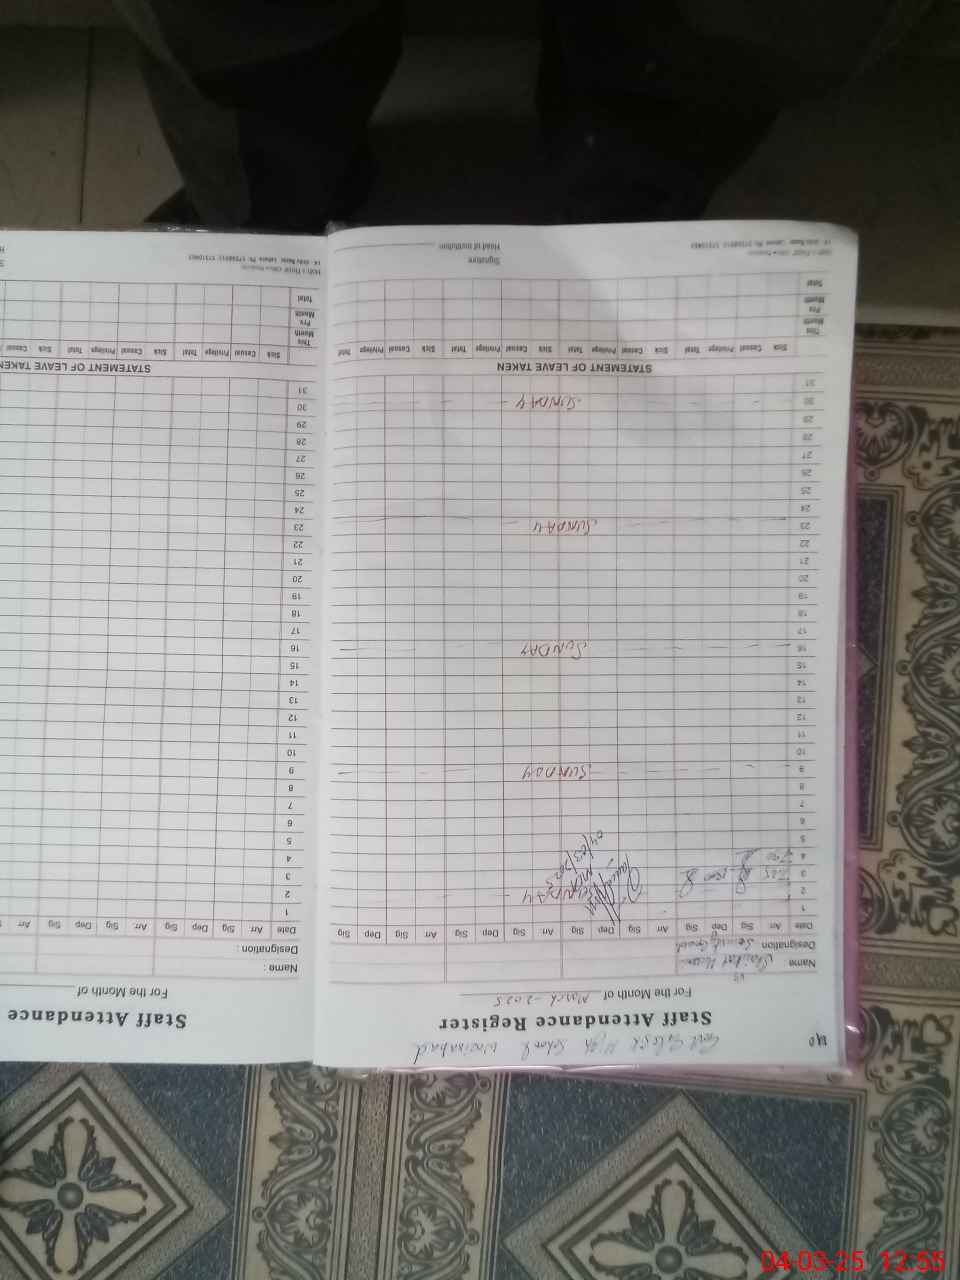 High School Wazirabad
Staff Attendance Register
For the Month of March-2025
Name :
Designation
Date Arr Sig Dep Sig Arr Sig Dep Sig Arr Sig Dep Sig Arr Sig Dep Sig
1
2 SUNDAY
3 7:25
4 04/03/2025
5
6
7
8
9 SUNDAY
10
11
12
13
14
15
16 SUNDAY
17
18
19
20
21
22
23 SUNDAY
24
25
26
27
28
29
30 SUNDAY
31
STATEMENT OF LEAVE TAKEN
Sick Casual Privilege Total Sick Casual Privilege Total Sick Casual Privilege Total Sick Casual Privilege Total
This Month
Prs Month
Total
Signature
Head of Institution
Staff Attendance
For the Month of
Name :
Designation :
Date Arr Sig Dep Sig Arr Sig Dep Sig Arr
1
2
3
4
5
6
7
8
9
10
11
12
13
14
15
16
17
18
19
20
21
22
23
24
25
26
27
28
29
30
31
STATEMENT OF LEAVE TAKEN
Sick Casual Privilege Total Sick Casual Privilege Total Sick Casual
This Month
Prs Month
Total
04-03-25 12:55